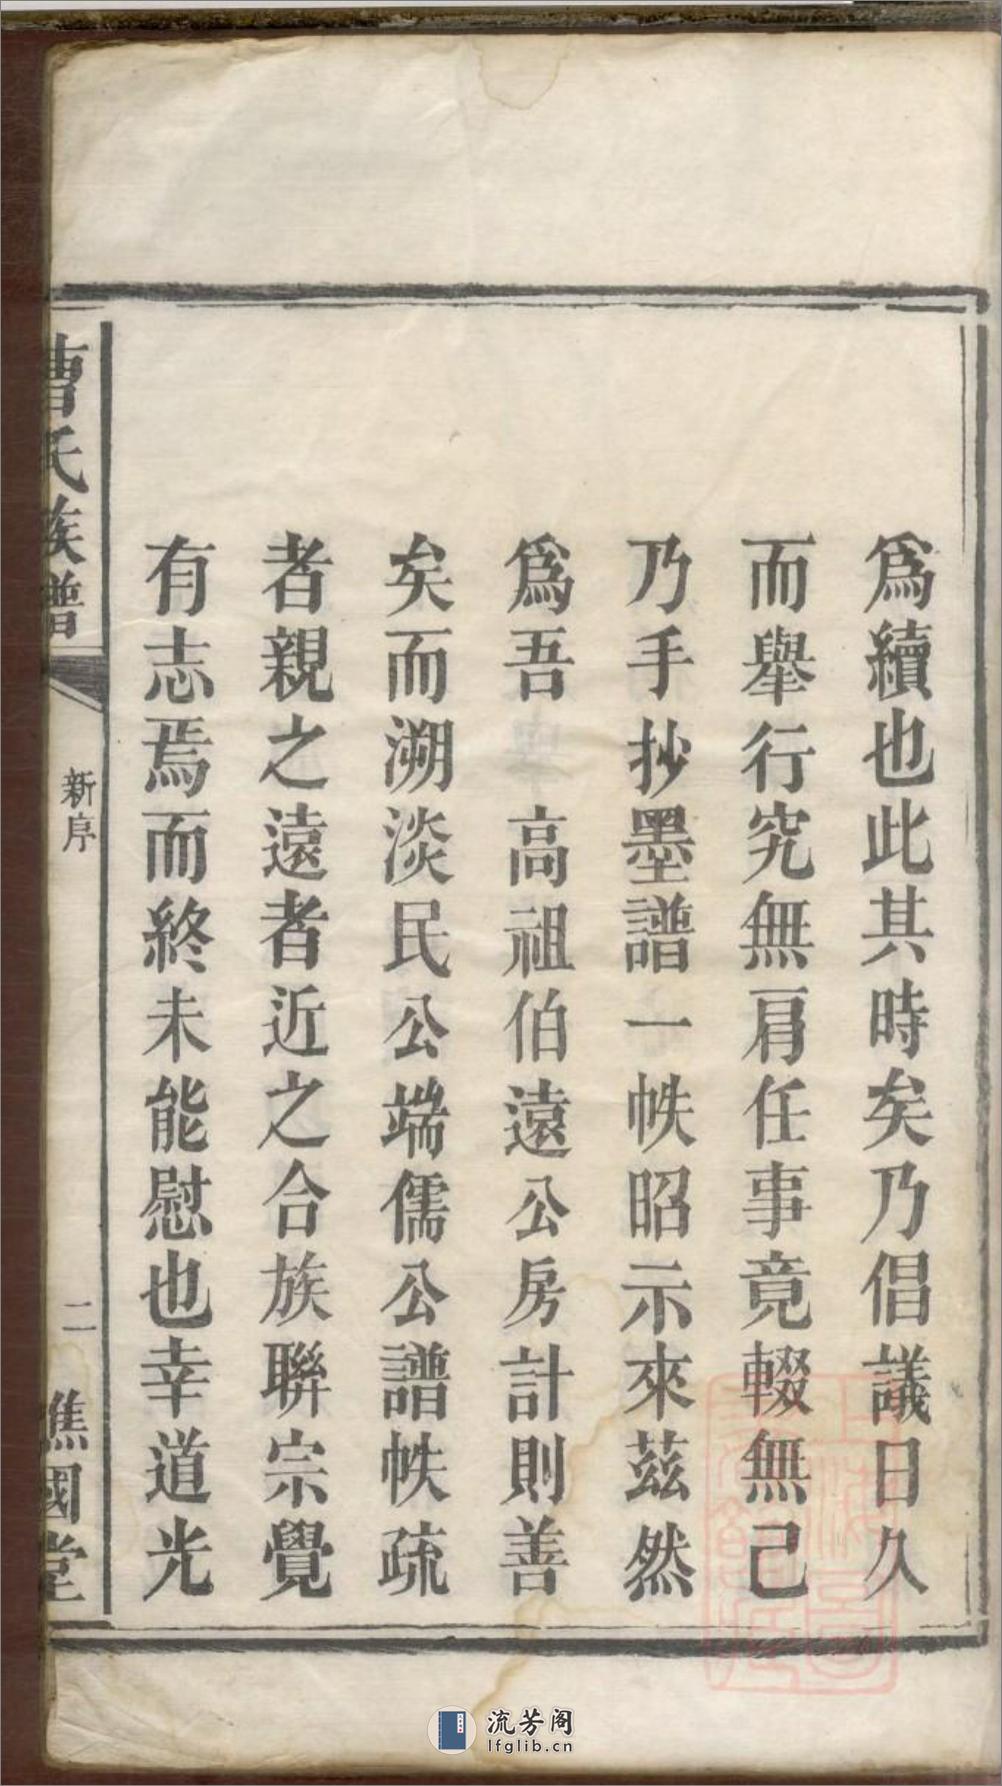 爲續也此其時矣乃倡議日久
而舉行究無肩任事竟輟無己
乃手抄墨譜一帙昭示來茲然
爲吾　高祖伯遠公房計則善
矣而溯淡民公端儒公譜帙疏
者親之遠者近之合族聯宗覺
有志焉而終未能慰也幸道光
曹氏族譜
新序
二
譙國堂
流芳阁
lfglib.cn